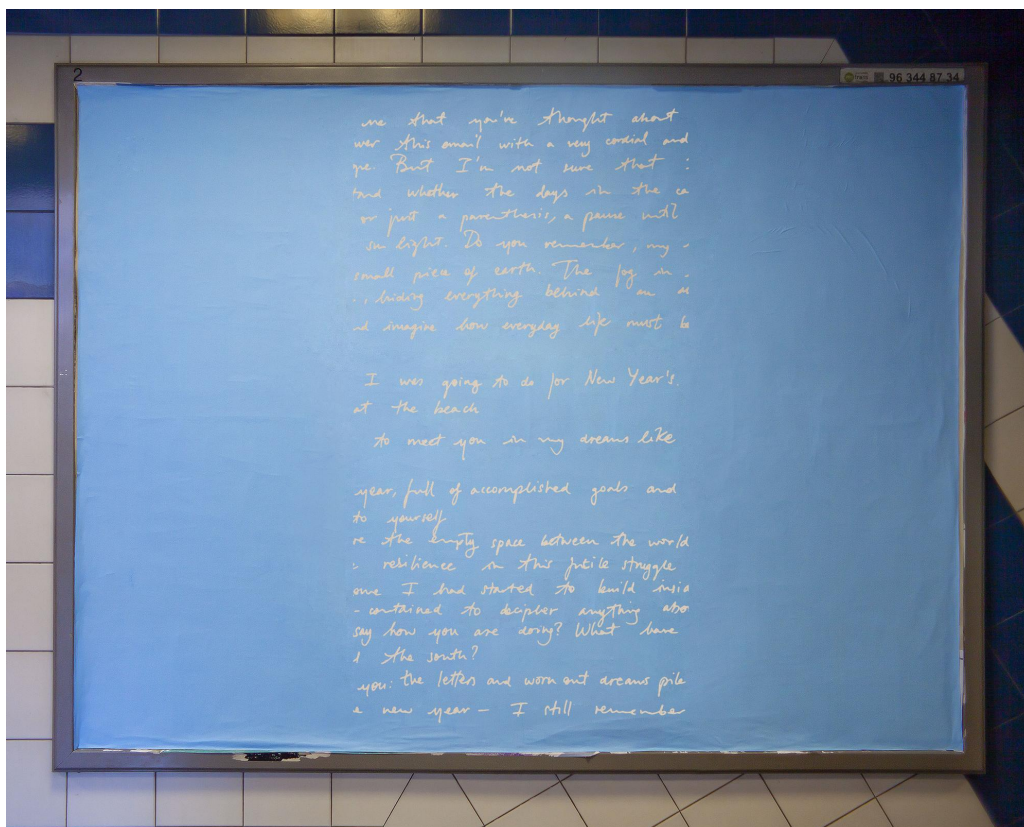 2
96 344 87 34
me that you've thought about
wer this email with a very cordial and
ye. But I'm not sure that
and whether the days in the ca
or just a parenthesis, a pause until
sun light. Do you remember, my
small piece of earth. The fog in
, hiding everything behind an
d imagine how everyday life must be
I was going to do for New Year's.
at the beach
to meet you in my dreams like
year, full of accomplished goals and
to yourself
re the empty space between the world
resilience in this futile struggle
one I had started to build insid
- contained to decipher anything abo
say how you are doing? What have
the south?
you: the letters and worn out dreams pile
e new year – I still remember